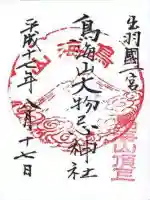 出羽國一宮
鳥海山大物忌神社
平成十七年八月十七日
鳥海山頂